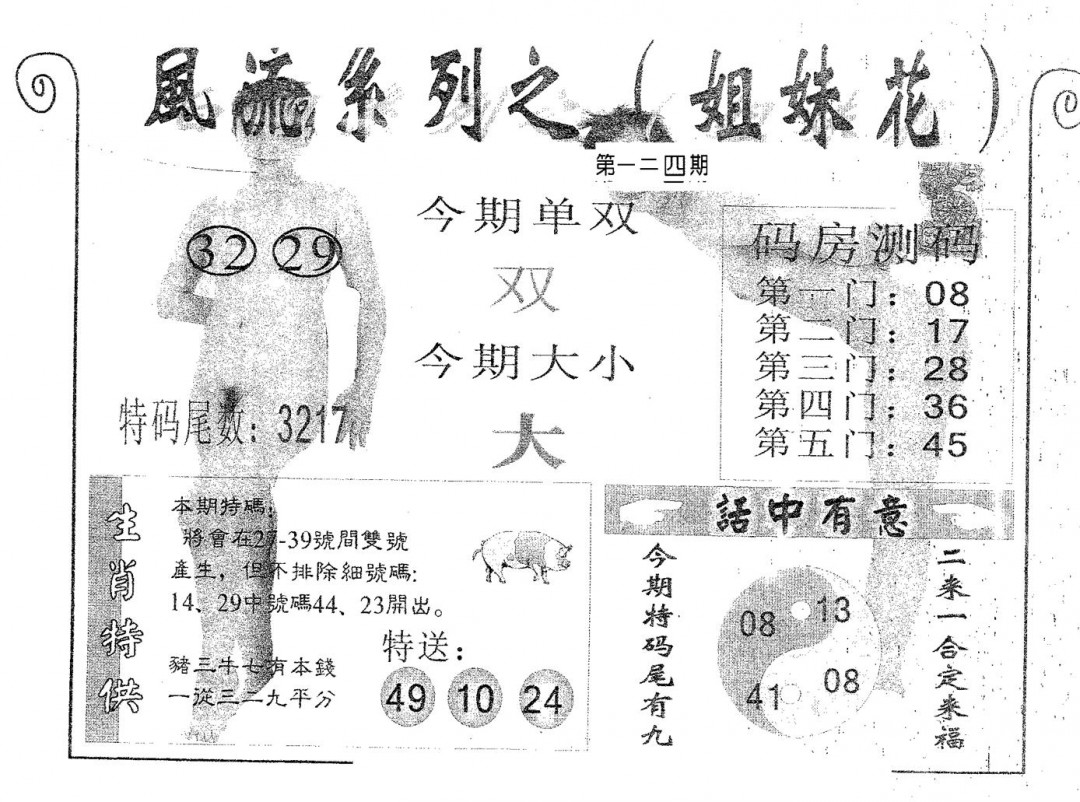 風流系列之（姐妹花）
第一二四期
32 29
今期单双
双
今期大小
大
特码尾数：3217
码房测码
第一门：08
第二门：17
第三门：28
第四门：36
第五门：45
生肖特供
本期特碼：
將會在27-39號間雙號
產生，但不排除細號碼：
14、29中號碼44、23開出。
豬三牛七有本錢
一從三二九平分
特送：
49 10 24
話中有意
今期特码尾有九
08 13
41 08
二来一合定来福